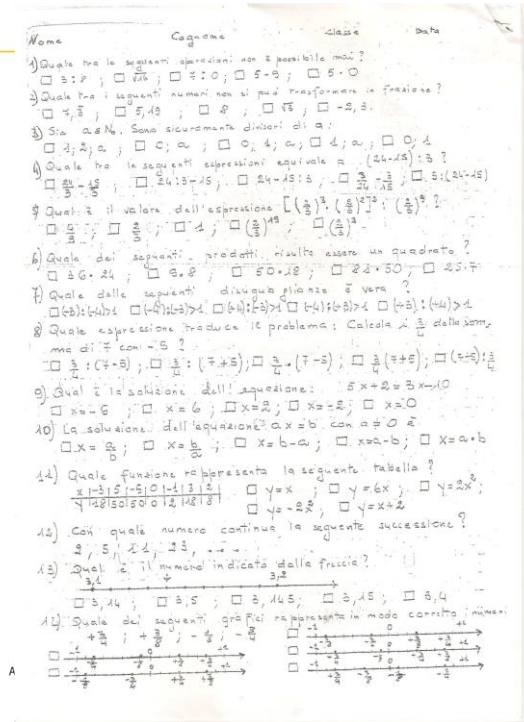 Nome Cognome Classe Data
1) Quale tra le seguenti operazioni non è possibile mai?
□ 3:8 ; □ √16 ; □ 7:0 ; □ 5-9 ; □ 5·0
2) Quale tra i seguenti numeri non si può trasformare in frazione?
□ 5,19 ; □ 8 ; □ √3 ; □ -2,3.
3) Sia a ∈ N₀. Sono sicuramente divisori di a:
□ 1; 2; a ; □ 0; a ; □ 0; 1; a ; □ 1; a ; □ 0; 1
4) Quale tra le seguenti espressioni equivale a (24-15):3 ?
□ 24/3 - 15/3 ; □ 24:3-15 ; □ 24-15:3 ; □ 3/24 - 3/15 ; □ 3:(24-15)
5) Qual è il valore dell'espressione
6) Quale dei seguenti prodotti risulta essere un quadrato?
□ 36·24 ; □ 9·8 ; □ 50·18 ; □ 81·50 ; □ 25·7
7) Quale delle seguenti disuguaglianze è vera?
8) Quale espressione traduce il problema: Calcola i 3/4 della som-
ma di 7 con -5 ?
□ 3/4 : (7-5) ; □ 3/4 : (7+5) ; □ 3/4 · (7-5) ; □ 3/4 (7+5) ; □ (7-5) : 3/4
9) Qual è la soluzione dell'equazione: 5x+2=3x-10
□ x=-6 ; □ x=6 ; □ x=2 ; □ x=-2 ; □ x=0
10) La soluzione dell'equazione ax=b con a≠0 è
□ x=a/b ; □ x=b/a ; □ x=b-a ; □ x=a-b ; □ x=a·b
11) Quale funzione rappresenta la seguente tabella?
x |-3|5|-5|0|-1|3|2 □ y=x ; □ y=6x ; □ y=2x² ;
y |18|50|50|0|2|18|8 □ y=-2x² ; □ y=x+2
12) Con quale numero continua la seguente successione?
2, 5, 11, 23, ....
13) Qual è il numero indicato dalla freccia?
3,1 3,2
□ 3,14 ; □ 3,5 ; □ 3,145 ; □ 3,15 ; □ 3,4
14) Quale dei seguenti grafici rappresenta in modo corretto i numeri
A